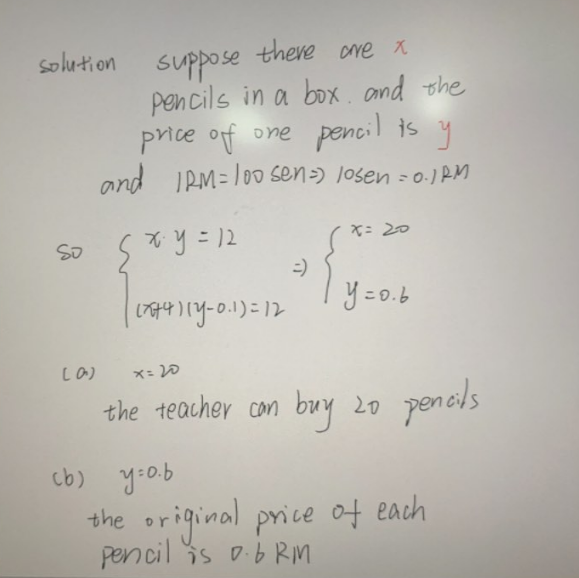 solution suppose there are x
pencils in a box. and the
price of one pencil is y
and 1RM=100sen=) 10sen=0.1RM
so { x·y=12 =) { x=20
(x+4)(y-0.1)=12 y=0.6
(a) x=20
the teacher can buy 20 pencils
(b) y=0.6
the original price of each
pencil is 0.6 RM